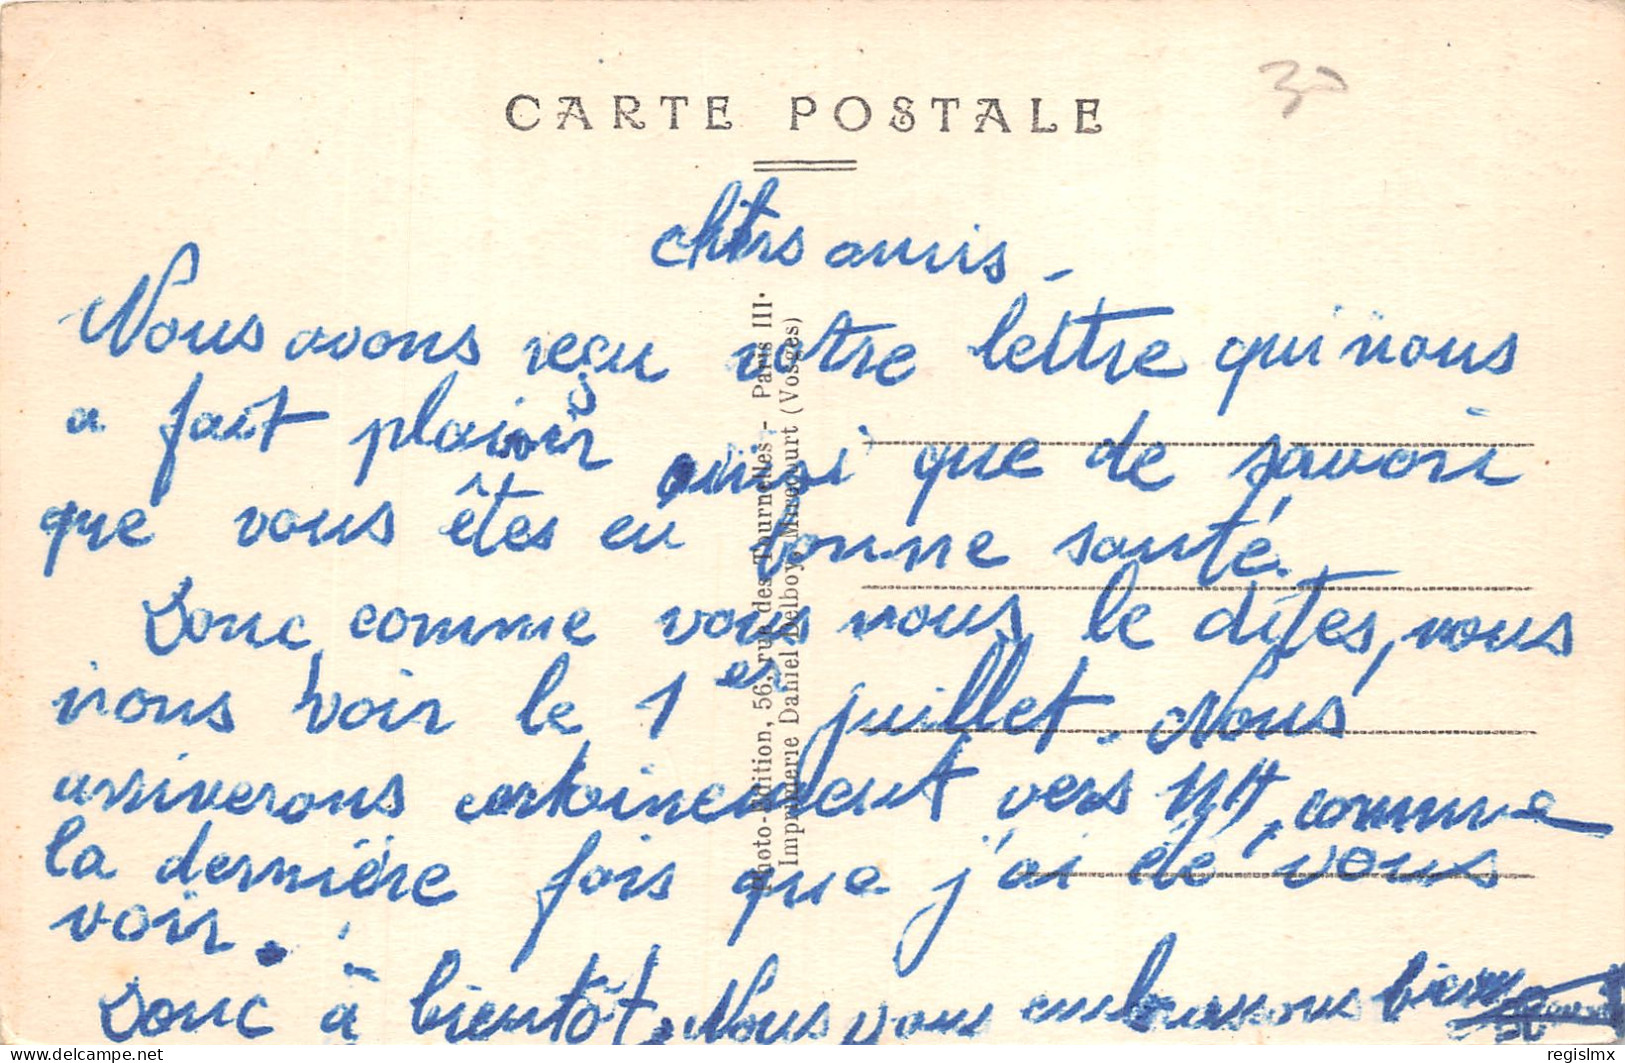 CARTE POSTALE
30
chers amis -
Nous avons reçu votre lettre qui nous
a fait plaisir ainsi que de savoir
que vous êtes en bonne santé.
Donc comme vous nous le dites, nous
irons voir le 1er juillet. Nous
arriverons certainement vers 11H, comme
la dernière fois que j'ai été vous
voir.
Donc à bientôt. Nous vous embrassons bien
Photo-Edition, 56, rue des Tournelles - Paris III.
Imprimerie Daniel Delboy, Mirecourt (Vosges)
delcampe.net
regislmx